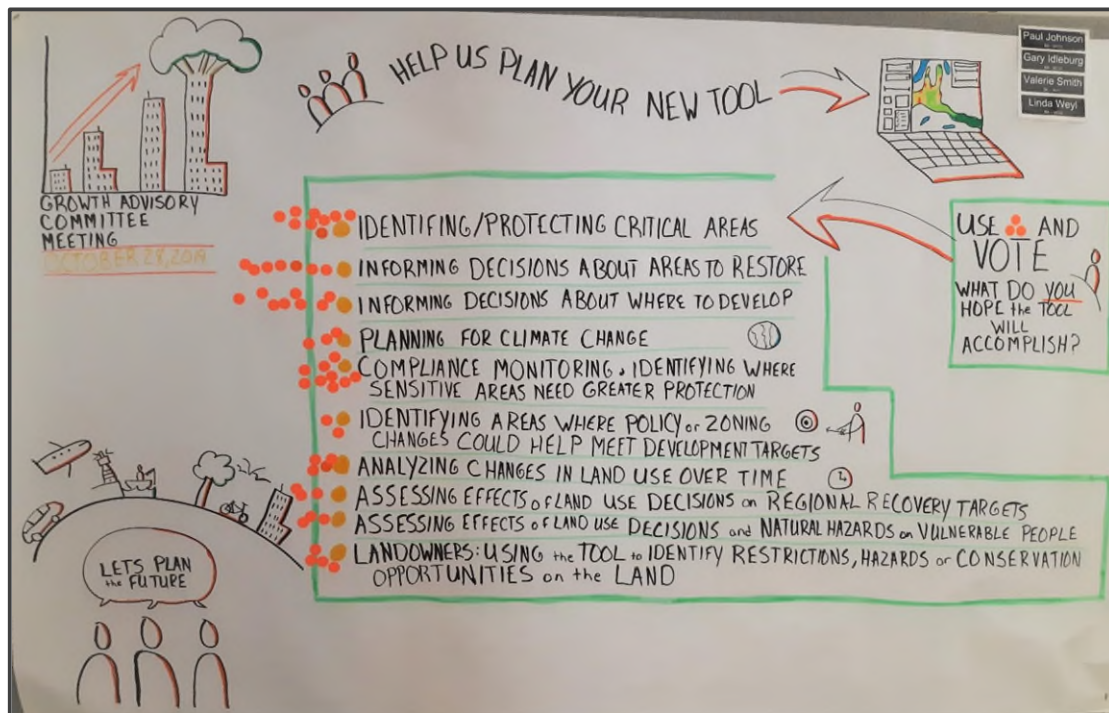 HELP US PLAN YOUR NEW TOOL
Paul Johnson
Gary Idleburg
Valerie Smith
Linda Weyl
GROWTH ADVISORY
COMMITTEE
MEETING
OCTOBER 28, 2019
USE AND
VOTE
WHAT DO YOU
HOPE the TOOL
WILL
ACCOMPLISH?
IDENTIFING/PROTECTING CRITICAL AREAS
INFORMING DECISIONS ABOUT AREAS TO RESTORE
INFORMING DECISIONS ABOUT WHERE TO DEVELOP
PLANNING FOR CLIMATE CHANGE
COMPLIANCE MONITORING, IDENTIFYING WHERE
SENSITIVE AREAS NEED GREATER PROTECTION
IDENTIFYING AREAS WHERE POLICY or ZONING
CHANGES COULD HELP MEET DEVELOPMENT TARGETS
ANALYZING CHANGES IN LAND USE OVER TIME
ASSESSING EFFECTS of LAND USE DECISIONS on REGIONAL RECOVERY TARGETS
ASSESSING EFFECTS of LAND USE DECISIONS and NATURAL HAZARDS on VULNERABLE PEOPLE
LANDOWNERS: USING the TOOL to IDENTIFY RESTRICTIONS, HAZARDS or CONSERVATION
OPPORTUNITIES on the LAND
LETS PLAN
the FUTURE